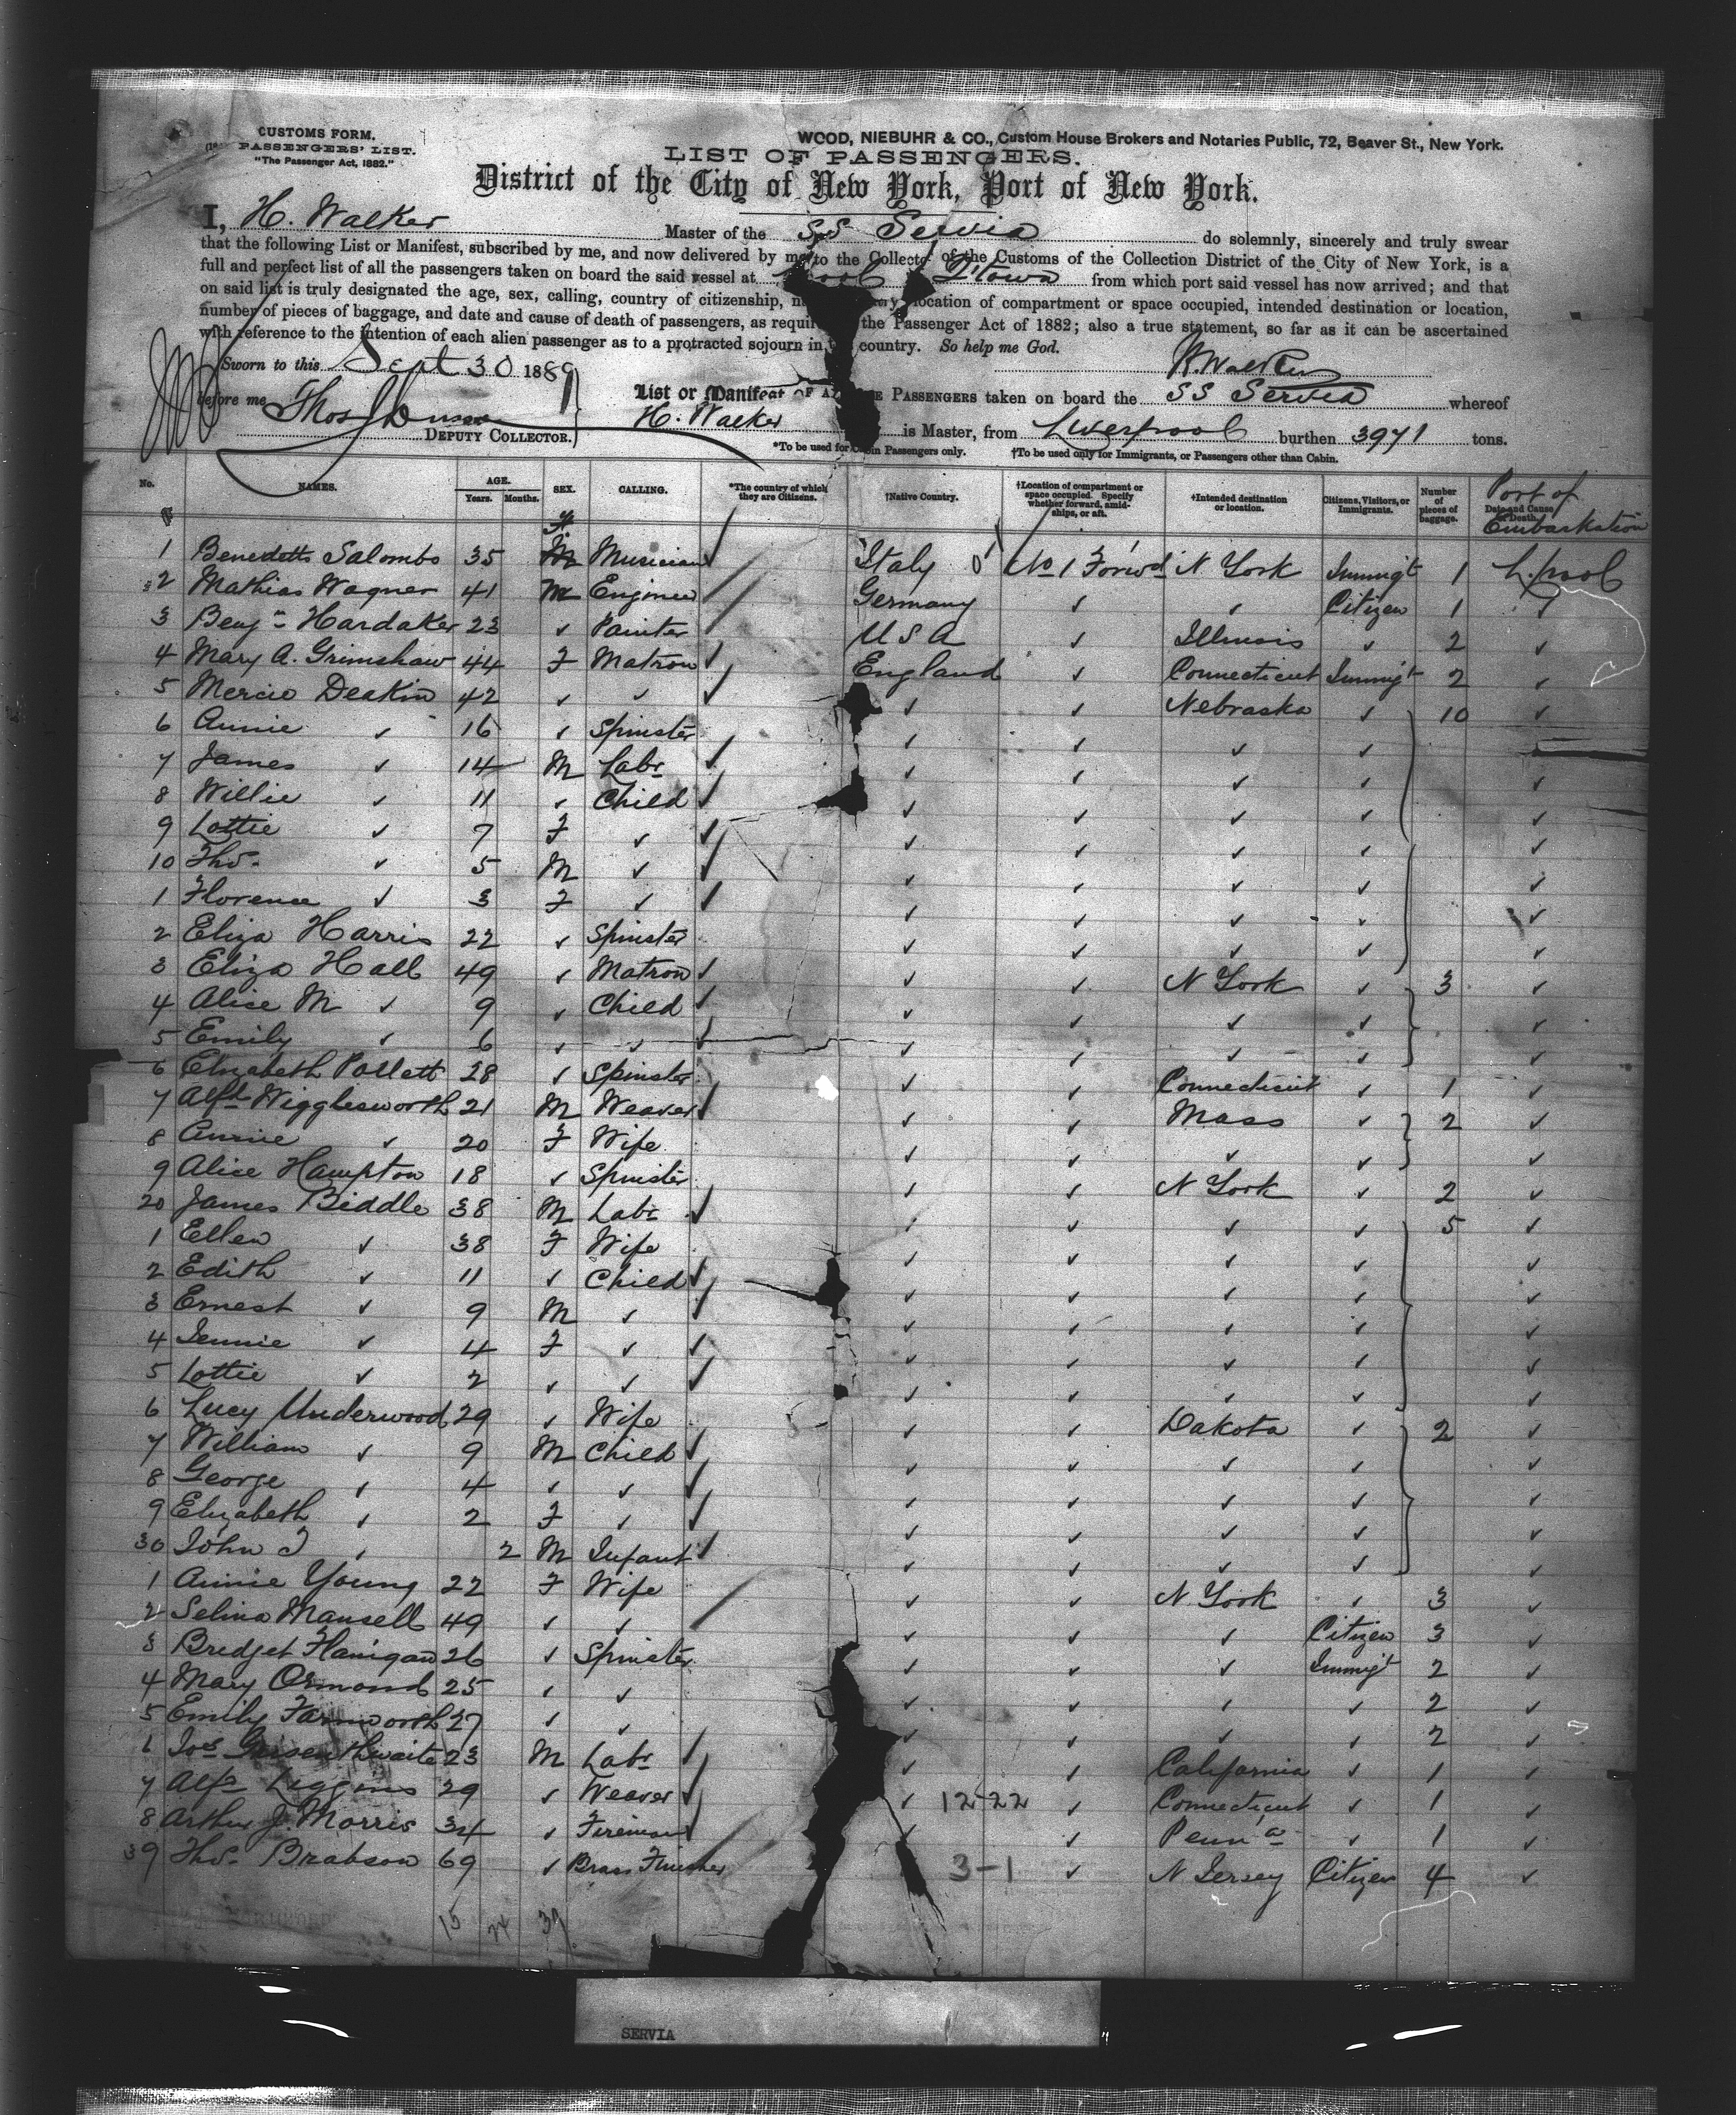 CUSTOMS FORM.
PASSENGERS' LIST.
"The Passenger Act, 1882."
WOOD, NIEBUHR & CO., Custom House Brokers and Notaries Public, 72, Beaver St., New York.
LIST OF PASSENGERS.
District of the City of New York, Port of New York.
I, H. Walker Master of the SS Servia do solemnly, sincerely and truly swear
that the following List or Manifest, subscribed by me, and now delivered by me to the Collector of the Customs of the Collection District of the City of New York, is a
full and perfect list of all the passengers taken on board the said vessel at pool Q'town from which port said vessel has now arrived; and that
on said list is truly designated the age, sex, calling, country of citizenship, location of compartment or space occupied, intended destination or location,
number of pieces of baggage, and date and cause of death of passengers, as requir the Passenger Act of 1882; also a true statement, so far as it can be ascertained
with reference to the intention of each alien passenger as to a protracted sojourn in country. So help me God.
Sworn to this Sept 30 1889 H. Walker
before me Thos
DEPUTY COLLECTOR.
List or Manifest OF PASSENGERS taken on board the SS Servia whereof
H. Walker is Master, from Liverpool burthen 3971 tons.
*To be used for Cabin Passengers only. †To be used only for Immigrants, or Passengers other than Cabin.
No. NAMES. AGE. Years. Months. SEX. CALLING. *The country of which they are Citizens. †Native Country. †Location of compartment or space occupied. Specify whether forward, amidships, or aft. †Intended destination or location. Citizens, Visitors, or Immigrants. Number of pieces of baggage. Date and Cause of Death. Port of Embarkation
1 Benedetto Salombo 35 M Musician Italy No 1 Forwd N York Immigt 1 L.pool
2 Mathias Wagner 41 M Engineer Germany ✓ ✓ Citizen 1 ✓
3 Benjn Hardaker 23 ✓ Painter U S A ✓ Illinois ✓ 2 ✓
4 Mary A. Grimshaw 44 F Matron England ✓ Connecticut Immigt 2 ✓
5 Mercie Deakin 42 ✓ ✓ ✓ ✓ Nebraska ✓ 10 ✓
6 Annie ✓ 16 ✓ Spinster ✓ ✓ ✓ ✓ ✓
7 James ✓ 14 M Labr ✓ ✓ ✓ ✓ ✓
8 Willie ✓ 11 ✓ Child ✓ ✓ ✓ ✓ ✓
9 Lottie ✓ 7 F ✓ ✓ ✓ ✓ ✓ ✓
10 Thos. ✓ 5 M ✓ ✓ ✓ ✓ ✓ ✓
1 Florence ✓ 3 F ✓ ✓ ✓ ✓ ✓ ✓
2 Eliza Harris 22 ✓ Spinster ✓ ✓ ✓ ✓ ✓
3 Eliza Hall 49 ✓ Matron ✓ ✓ N York ✓ 3 ✓
4 Alice M ✓ 9 ✓ Child ✓ ✓ ✓ ✓ ✓
5 Emily ✓ 6 ✓ ✓ ✓ ✓ ✓ ✓ ✓
6 Elizabeth Pollett 28 ✓ Spinster ✓ ✓ Connecticut ✓ 1 ✓
7 Alfd Wigglesworth 21 M Weaver ✓ ✓ Mass ✓ 2 ✓
8 Annie ✓ 20 F Wife ✓ ✓ ✓ ✓ ✓
9 Alice Hampton 18 ✓ Spinster ✓ ✓ N York ✓ 2 ✓
20 James Biddle 38 M Labr ✓ ✓ ✓ ✓ 5 ✓
1 Ellen ✓ 38 F Wife ✓ ✓ ✓ ✓ ✓
2 Edith ✓ 11 ✓ Child ✓ ✓ ✓ ✓ ✓
3 Ernest ✓ 9 M ✓ ✓ ✓ ✓ ✓ ✓
4 Jennie ✓ 4 F ✓ ✓ ✓ ✓ ✓ ✓
5 Lottie ✓ 2 ✓ ✓ ✓ ✓ ✓ ✓ ✓
6 Lucy Underwood 29 ✓ Wife ✓ ✓ Dakota ✓ 2 ✓
7 William ✓ 9 M Child ✓ ✓ ✓ ✓ ✓
8 George ✓ 4 ✓ ✓ ✓ ✓ ✓ ✓ ✓
9 Elizabeth ✓ 2 F ✓ ✓ ✓ ✓ ✓ ✓
30 John J ✓ 2 M Infant ✓ ✓ ✓ ✓ ✓
1 Annie Young 22 F Wife ✓ ✓ N York ✓ 3 ✓
2 Selina Mansell 49 ✓ ✓ ✓ ✓ ✓ Citizen 3 ✓
3 Bridget Flanigan 26 ✓ Spinster ✓ ✓ ✓ Immigt 2 ✓
4 Mary Ormond 25 ✓ ✓ ✓ ✓ ✓ ✓ 2 ✓
5 Emily Farnworth 27 ✓ ✓ ✓ ✓ ✓ ✓ 2 ✓
6 Jos 23 M Labr ✓ ✓ California ✓ 1 ✓
7 Alfd Liggins 29 ✓ Weaver ✓ 12-22 ✓ Connecticut ✓ 1 ✓
8 Arthur J. Morris 34 ✓ Fireman ✓ ✓ Penn'a ✓ 1 ✓
39 Thos. Brabson 69 ✓ Brass Finisher 3-1 ✓ N Jersey Citizen 4 ✓
15 24 39
SERVIA